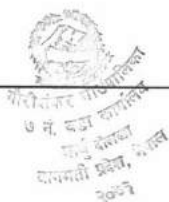 गौरीशंकर गाउँपालिका
७ नं. वडा कार्यालय
दोलखा
बागमती प्रदेश, नेपाल
२०७३